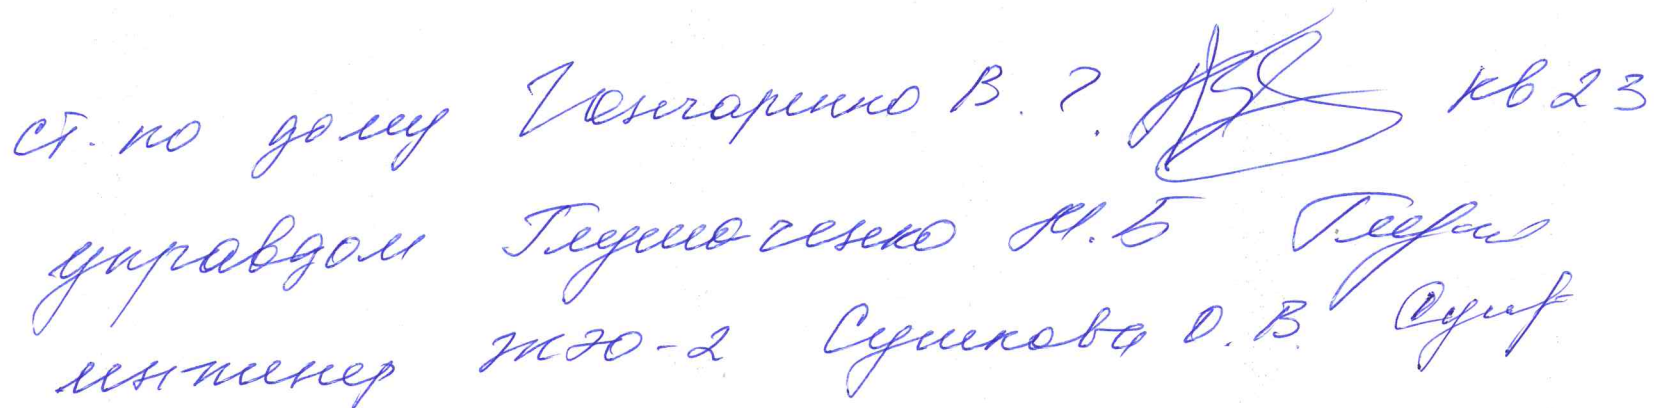 ст. по дому Гончаренко В. Г. кв 23
управдом Глушаченко Н. Б
инженер ЖЭО-2 Сушкова О. В.